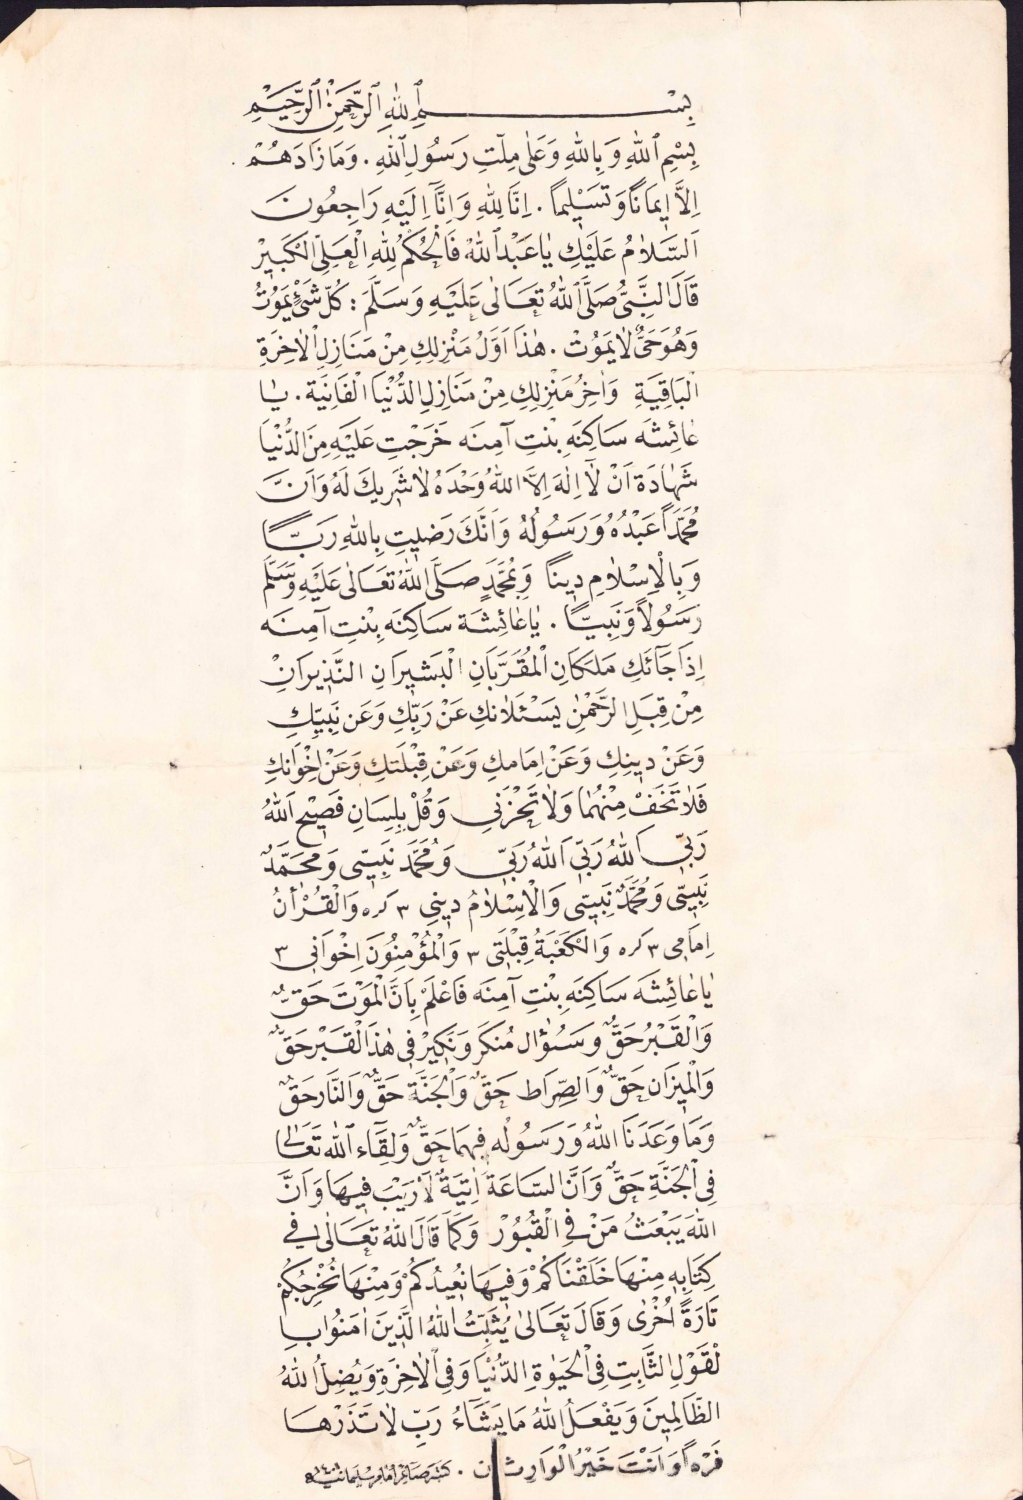 بِسْمِ ٱللهِ ٱلرَّحْمٰنِ ٱلرَّحِيمِ
بِسْمِ ٱللهِ وَبِاللهِ وَعَلٰى مِلَّتِ رَسُولِ ٱللهِ . وَمَا زَادَهُمْ
اِلَّا اِيمَانًا وَتَسْلِيمًا . اِنَّا لِلهِ وَاِنَّآ اِلَيْهِ رَاجِعُونَ
اَلسَّلَامُ عَلَيْكِ يَا عَبْدَ ٱللهْ فَالْحُكْمُ لِلهِ الْعَلِىِّ الْكَبِيرْ
قَالَ النَّبِىُّ صَلَّى ٱللهُ تَعَالٰى عَلَيْهِ وَسَلَّمَ : كُلُّ شَىْءٍ يَمُوتُ
وَهُوَ حَىٌّ لَا يَمُوتْ . هٰذَا اَوَّلُ مَنْزِلِكِ مِنْ مَنَازِلِ الْاٰخِرَةِ
الْبَاقِيَةِ وَاٰخِرُ مَنْزِلِكِ مِنْ مَنَازِلِ الدُّنْيَا الْفَانِيَة . يَا
عَائِشَه سَاكِنَه بِنْتِ آمِنَه خَرَجْتِ عَلَيْهِ مِنَ الدُّنْيَا
شَهَادَة اَنْ لَآ اِلٰهَ اِلَّا اللهُ وَحْدَهُ لَا شَرِيكَ لَهُ وَاَنَّ
مُحَمَّدًا عَبْدُهُ وَرَسُولُهُ وَاَنَّكَ رَضِيتِ بِاللهِ رَبًّا
وَبِالْاِسْلَامِ دِينًا وَبِمُحَمَّدٍ صَلَّى اللهُ تَعَالٰى عَلَيْهِ وَسَلَّمَ
رَسُولًا وَنَبِيًّا . يَا عَائِشَة سَاكِنَه بِنْتِ آمِنَه
اِذَا جَآئَكِ مَلَكَانِ الْمُقَرَّبَانِ الْبَشِيرَانِ النَّذِيرَانِ
مِنْ قِبَلِ الرَّحْمٰنِ يَسْئَلَانِكِ عَنْ رَبِّكِ وَعَن نَبِيِّكِ
وَعَنْ دِينِكِ وَعَنْ اِمَامِكِ وَعَنْ قِبْلَتِكِ وَعَنْ اِخْوَانِكِ
فَلَا تَخَفْ مِنْهُمَا وَلَا تَحْزَنِي وَقُلْ بِلِسَانِ فَصِيْحِ اَللهُ
رَبِّى اَللهُ رَبِّى اَللهُ رَبِّى وَمُحَمَّد نَبِيِّى وَمُحَمَّدٌ
نَبِيِّى وَمُحَمَّدٌ نَبِيِّى وَالْاِسْلَامُ دِينِى ٣ كره وَالْقُرْاٰنُ
اِمَامِى ٣ كره وَالْكَعْبَةُ قِبْلَتِى ٣ وَالْمُؤْمِنُونَ اِخْوَانِى ٣
يَا عَائِشَه سَاكِنَه بِنْتِ آمِنَه فَاعْلَمْ بِاَنَّ الْمَوْتَ حَقٌّ
وَالْقَبْرُ حَقٌّ وَسَؤَال مُنْكَرَ وَنَكِيرْ فِى هٰذَا الْقَبْرِ حَقٌّ
وَالْمِيزَانِ حَقٌّ وَالصِّرَاط حَقٌّ وَالْجَنَّةِ حَقٌّ وَالنَّار حَقٌّ
وَمَا وَعَدَنَا اللهُ وَرَسُولُه فِيهِمَا حَقٌّ وَلِقَآءِ ٱللهِ تَعَالٰى
فِى الْجَنَّةِ حَقٌّ وَاَنَّ السَّاعَةَ اٰتِيَةٌ لَا رَيْبَ فِيهَا وَاَنَّ
اللهَ يَبْعَثُ مَنْ فِى الْقُبُورْ وَكَمَا قَالَ اللهُ تَعَالٰى فِى
كِتَابِهِ مِنْهَا خَلَقْنَاكُمْ وَفِيهَا نُعِيدُكُمْ وَمِنْهَا نُخْرِجُكُمْ
تَارَةً اُخْرٰى وَقَالَ تَعَالٰى يُثَبِّتُ اللهُ الَّذِينَ اٰمَنُوا بِا
لْقَوْلِ الثَّابِتِ فِى الْحَيٰوةِ الدُّنْيَا وَفِى الْاٰخِرَةِ وَيُضِلُّ اللهُ
الظَّالِمِينَ وَيَفْعَلُ اللهُ مَا يَشَآءُ رَبِّ لَا تَذَرْهَا
فَرْدًا وَاَنْتَ خَيْرُ الْوَارِثِينَ .